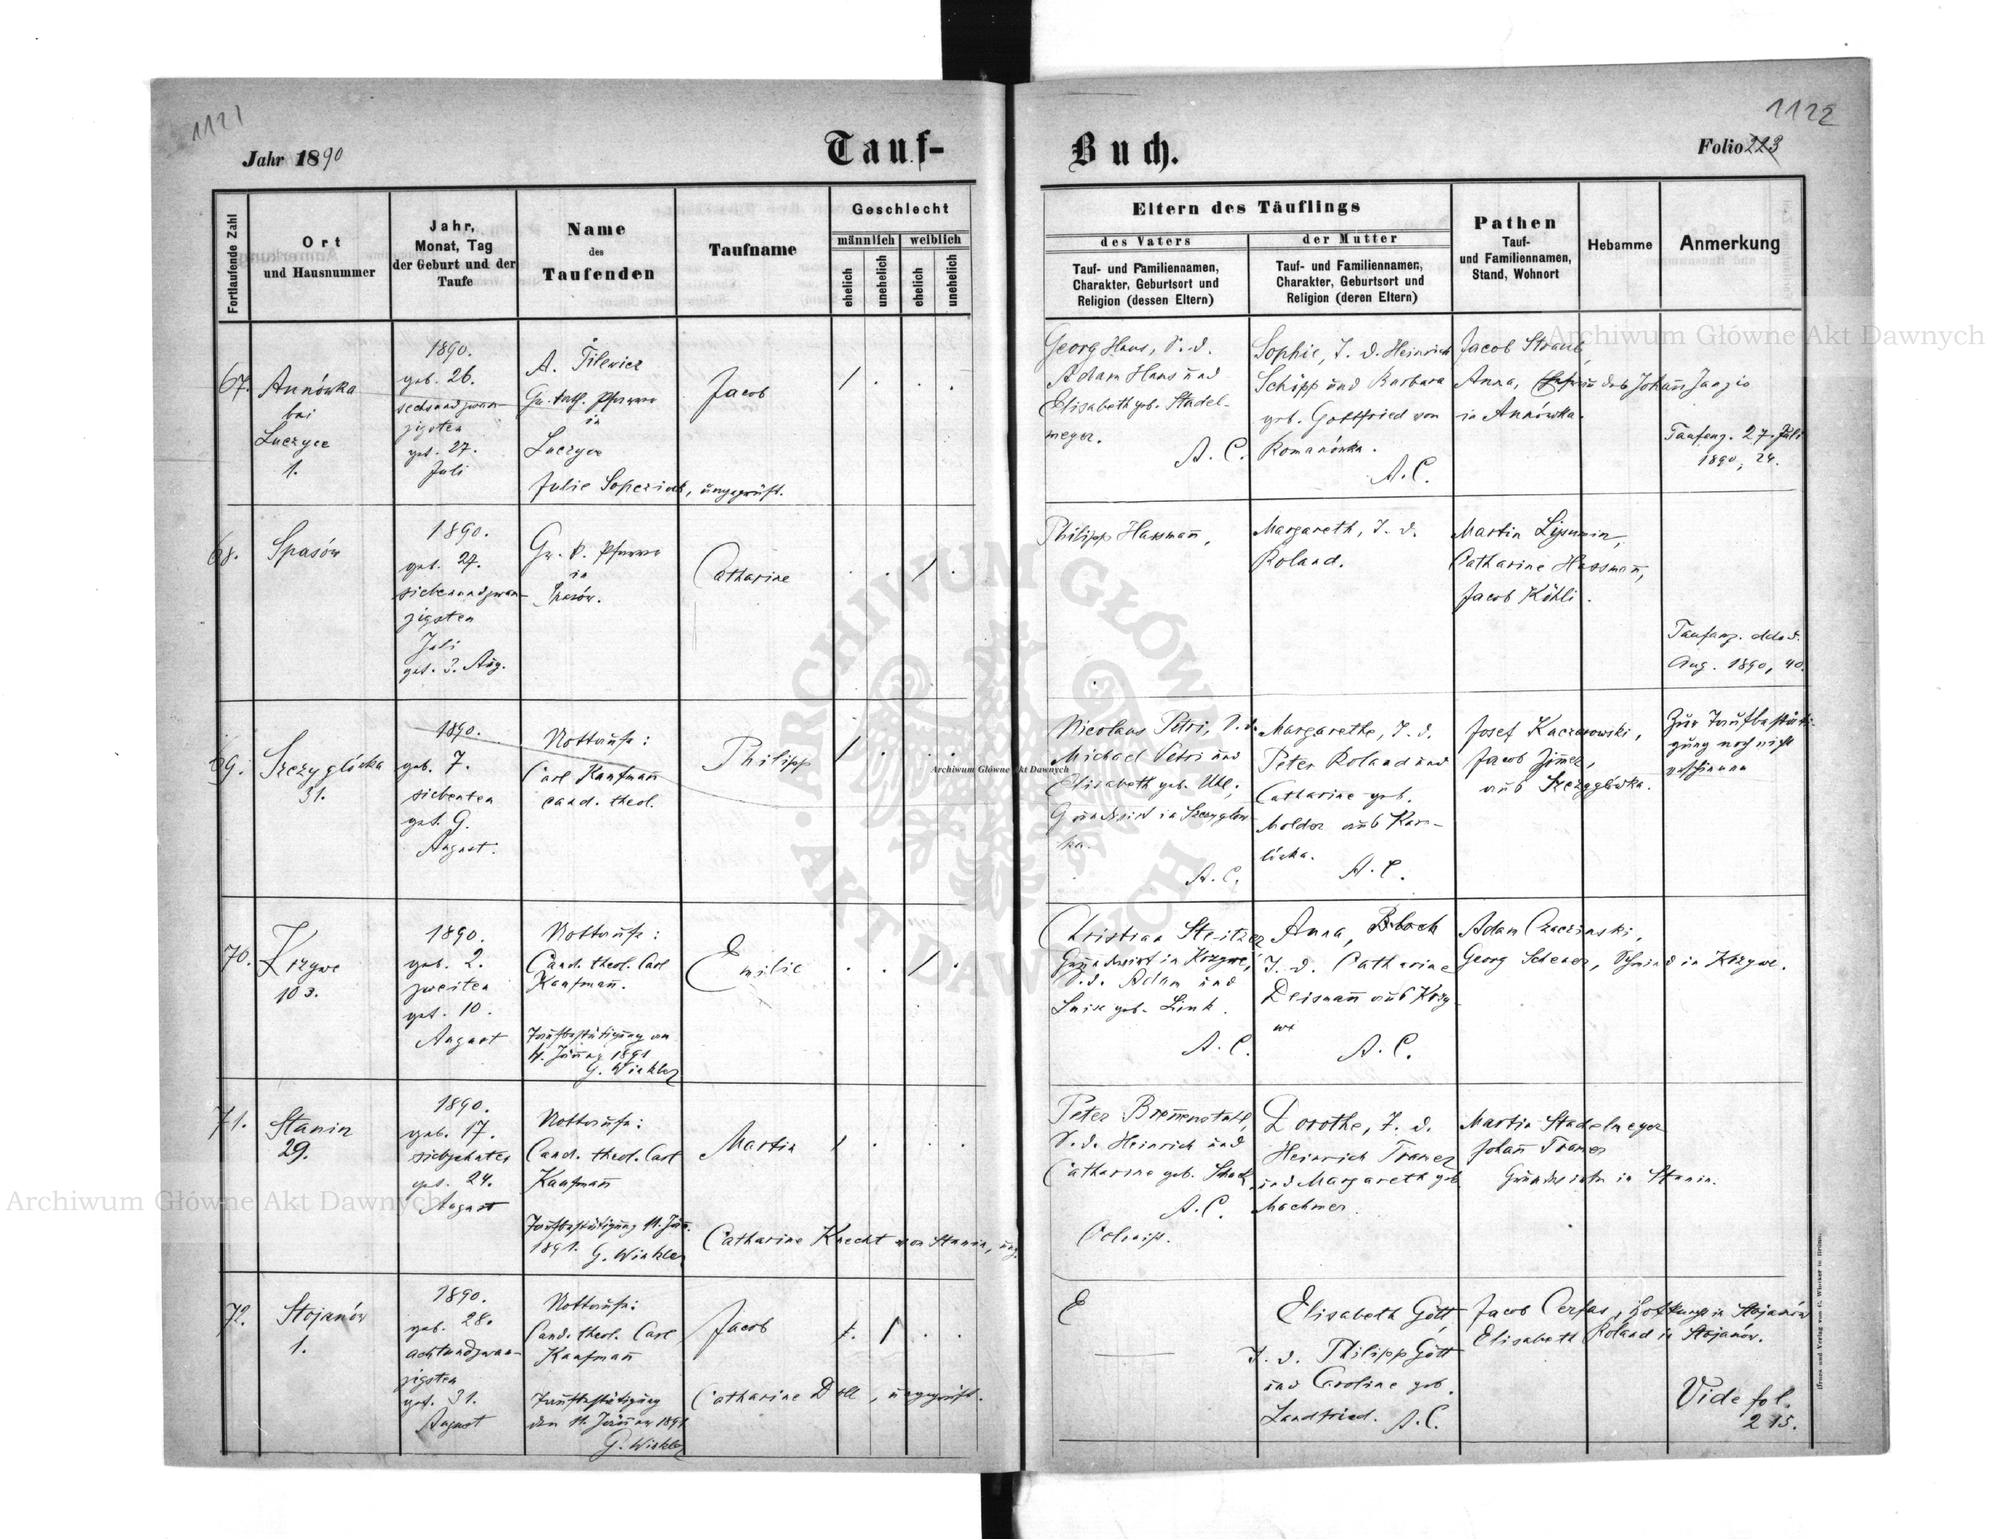 1121
1122
Jahr 1890
Tauf-
Buch.
Folio 223
Fortlaufende Zahl
Ort
und Hausnummer
Jahr,
Monat, Tag
der Geburt und der
Taufe
Name
des
Taufenden
Taufname
Geschlecht
männlich
weiblich
ehelich
unehelich
ehelich
unehelich
Eltern des Täuflings
des Vaters
der Mutter
Tauf- und Familiennamen,
Charakter, Geburtsort und
Religion (dessen Eltern)
Tauf- und Familiennamen,
Charakter, Geburtsort und
Religion (deren Eltern)
Pathen
Tauf-
und Familiennamen,
Stand, Wohnort
Hebamme
Anmerkung
67.
Annówka
bei
Luczyce
1.
1890.
geb. 26.
sechsundzwan-
zigsten
get. 27.
Juli
A. Tilewicz
Gr. kath. Pfarrer
in
Luczyce
Julie , ungeprüft.
Jacob
Georg Haus, S. d.
Adam Haus und
Elisabeth geb. Stadel-
meyer.
A. C.
Sophie, T. d. Heinrich
Schipp und Barbara
geb. Gottfried von
Romanówka.
A. C.
Jacob Straub,
Anna, Ehefrau des Johann
in Annówka.
Taufanz. 27. Juli
1890, 24.
68.
Spasów
1890.
geb. 27.
siebenundzwan-
zigsten
Juli
get. 3. Aug.
Gr. k. Pfarrer
in
Spasów.
Catharine
Philipp Hassmann,
Margareth, T. d.
Roland.
Martin
Catharine Hassmann,
Jacob Köhli.
Taufanz. ddo 3.
Aug. 1890, 40.
69.
Szczyglówka
31.
1890.
geb. 7.
siebenten
get. 9.
August.
Nottaufe:
Carl Kaufmann
cand. theol.
Philipp
Nicolaus Petri, S. d.
Michael Petri und
Elisabeth geb. Uhl,
Grundwirt in Szczyglów-
ka.
A. C.
Margarethe, T. d.
Peter Roland und
Catharine geb.
Molder aus Kar-
lówka.
A. C.
Josef Kaczorowski,
Jacob Zimer,
aus Szczyglówka.
Zur Taufbestäti-
gung noch nicht
erschienen
70.
Krzywe
103.
1890.
geb. 2.
zweiten
get. 10.
August
Nottaufe:
Cand. theol. Carl
Kaufmann.
Taufbestätigung am
11. Jänner 1891
G. Winkler
Emilie
Christian Steitzer
Grundwirt in Krzywe,
S. d. Adam und
Luise geb. Link.
A. C.
Anna, Bloch
T. d. Catharine
Deismann aus Krzy-
we
A. C.
Adam Czaczinski,
Georg Scheuer, Schmied in Krzywe.
71.
Stanin
29.
1890.
geb. 17.
siebzehnten
get. 24.
August
Nottaufe:
Cand. theol. Carl
Kaufmann
Taufbestätigung 11. Jän.
1891. G. Winkler
Martin
Catharine Knecht von Stanin, ung.
Peter Brennenstuhl,
S. d. Heinrich und
Catharine geb. Schock
A. C.
Colonist.
Dorothe, T. d.
Heinrich Tramer
und Margareth geb.
Machmer.
Martin Stadelmeyer
Johann Tramer
Grundwirte in Stanin.
72.
Stojanów
1.
1890.
geb. 28.
achtundzwan-
zigsten
get. 31.
August
Nottaufe:
Cand. theol. Carl
Kaufmann
Taufbestätigung
den 11. Jänner 1891.
G. Winkler
Jacob
Catharine Doll, ungeprüft.
E
Elisabeth Gött,
T. d. Philipp Gött
und Caroline geb.
Landfried. A. C.
Jacob Cerfas, in Stojanów
Elisabeth Roland in Stojanów.
Vide fol.
215.
Archiwum Główne Akt Dawnych
Archiwum Główne Akt Dawnych
Archiwum Główne Akt Dawnych
ARCHIWUM GŁÓWNE AKT DAWNYCH